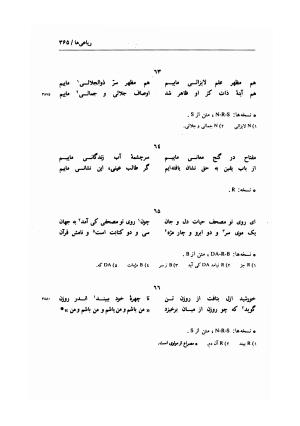 رباعی‌ها / ۳۶۵
۶۳
هم مظهر علم لایزالی ماییم هم مظهر سرّ ذوالجلالی¹ ماییم
هم آینهٔ ذات کز او ظاهر شد اوصاف جلالی و جمالی² ماییم ۳۵۷۵
* نسخه‌ها: N-R-S ، متن از S .
۱) N لایزالی ۲) N جمالی و جلالی.
۶۴
مفتاح در گنج معانی ماییم سرچشمهٔ آب زندگانی ماییم
از باب یقین به حق نشان یافته‌ایم گر طالب عینی، این نشانی ماییم
* نسخه: R .
۶۵
ای روی تو مصحف حیات دل و جان چون¹ روی تو مصحفی کی آمد² به جهان
یک موی سر³ و دو ابرو و چار مژه⁴ سی و دو کتابت است⁵ و نامش قرآن
* نسخه‌ها: DA-R-B ، متن از B .
۱) R جز ۲) R نیامد DA کی آید ۳) B ز سر ۴) B مژهات ۵) DA که.
۶۶
خورشید ازل بتافت از روزن تن تا چهرهٔ خود ببند¹ اندر روزن ۳۵۸۰
گوید² که چو روزن از میان برخیزد « من باشم و من باشم و من باشم و من »*
* نسخه‌ها: N-R-S ، متن از S .
۱) R بیند ۲) R آن دم. * مصراع از مولوی است.